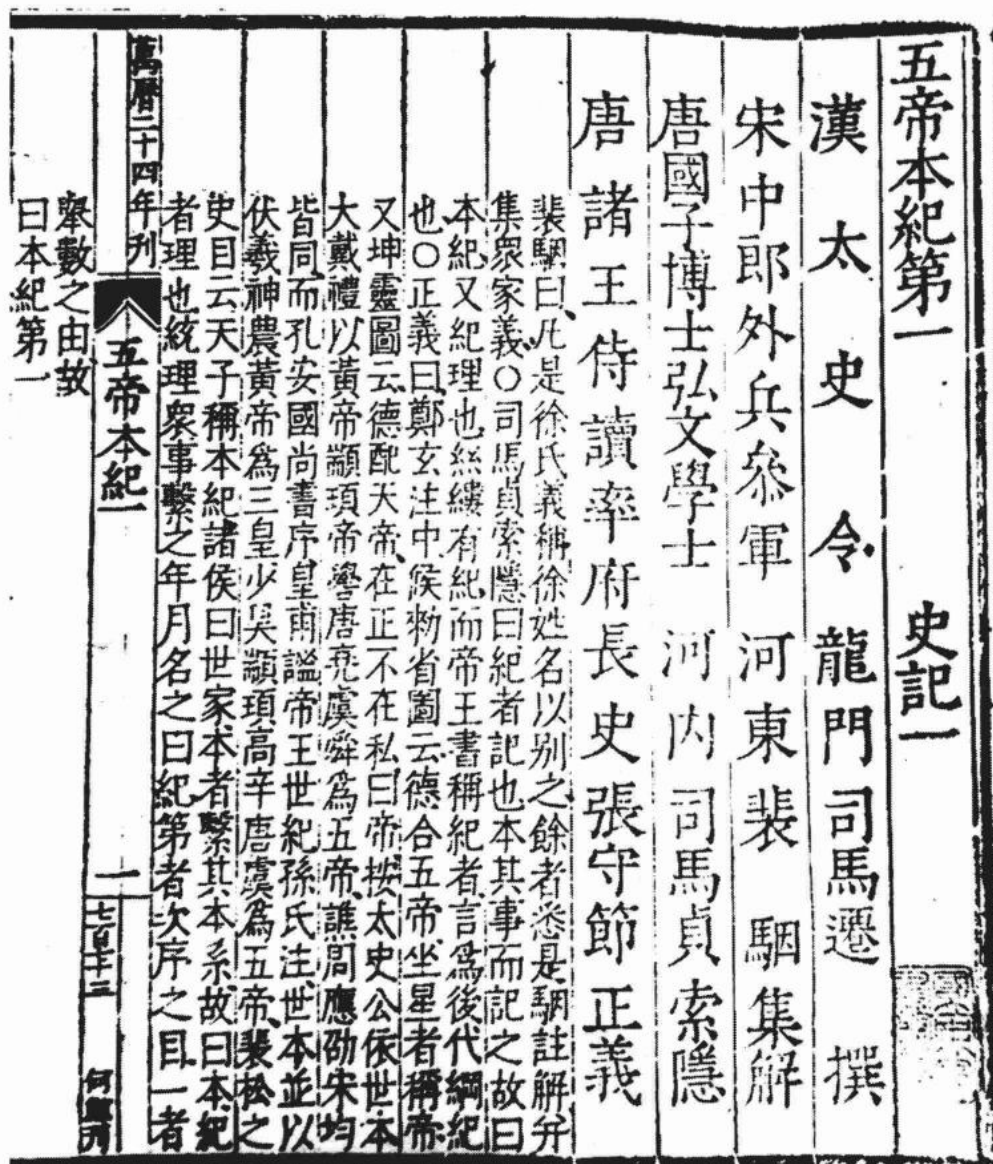 五帝本紀第一 史記一
漢太史令龍門司馬遷 撰
宋中郎外兵參軍河東裴 駰集解
唐國子博士弘文學士 河内司馬貞索隱
唐諸王侍讀率府長史張守節正義
裴駰曰、凡是徐氏義、稱徐姓名以别之、餘者悉是駰註解、并
集衆家義、○司馬貞索隱曰、紀者記也、本其事而記之、故曰
本紀、又紀理也、絲縷有紀、而帝王書稱紀者、言爲後代綱紀
也、○正義曰、鄭玄注中候勑省圖云、德合五帝坐星者稱帝、
又坤靈圖云、德配天帝、在正不在私、曰帝、按太史公依世本
大戴禮、以黃帝顓頊帝嚳唐堯虞舜爲五帝、譙周應劭宋均
皆同、而孔安國尚書序、皇甫謐帝王世紀、孫氏注世本、並以
伏羲神農黃帝爲三皇、少昊顓頊高辛唐虞爲五帝、裴松之
史目云、天子稱本紀、諸侯曰世家、本者繫其本系、故曰本紀
者理也、統理衆事、繫之年月、名之曰紀、第者次序之目、一者
萬曆二十四年刊 五帝本紀一 一
舉數之由、故
曰本紀第一